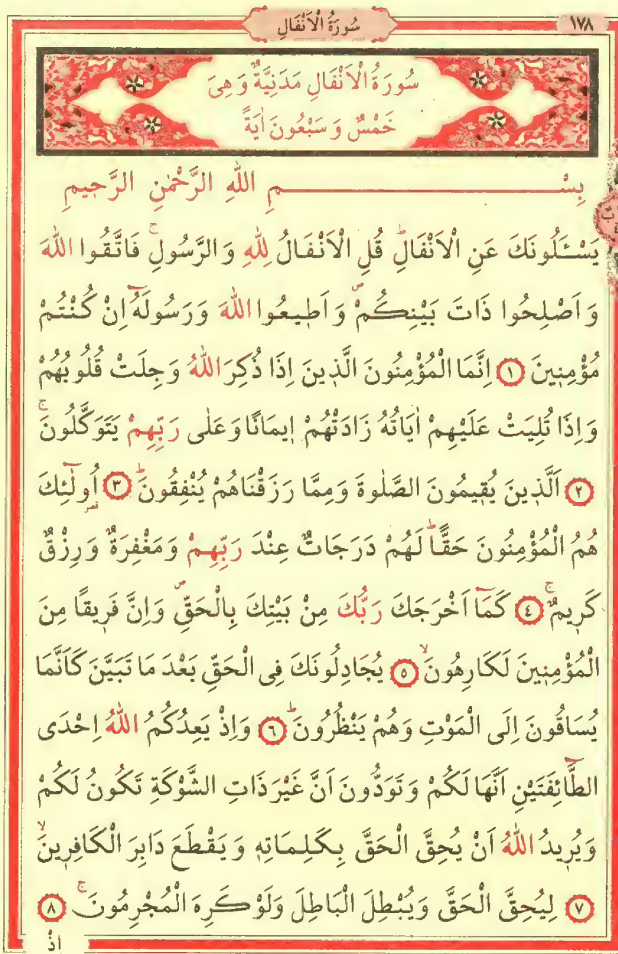 ١٧٨
سُورَةُ الْاَنْفَالِ
سُورَةُ الْاَنْفَالِ مَدَنِيَّةٌ وَهِىَ
خَمْسٌ وَسَبْعُونَ اٰيَةً
بِسْمِ اللهِ الرَّحْمٰنِ الرَّحٖيمِ
يَسْـَٔلُونَكَ عَنِ الْاَنْفَالِؕ قُلِ الْاَنْفَالُ لِلّٰهِ وَالرَّسُولِۚ فَاتَّقُوا اللهَ
وَاَصْلِحُوا ذَاتَ بَيْنِكُمْࣕ وَاَطٖيعُوا اللهَ وَرَسُولَهُٓ اِنْ كُنْتُمْ
مُؤْمِنٖينَ ﴿١﴾ اِنَّمَا الْمُؤْمِنُونَ الَّذٖينَ اِذَا ذُكِرَ اللهُ وَجِلَتْ قُلُوبُهُمْ
وَاِذَا تُلِيَتْ عَلَيْهِمْ اٰيَاتُهُ زَادَتْهُمْ اٖيمَانًا وَعَلٰى رَبِّهِمْ يَتَوَكَّلُونَۚ
﴿٢﴾ اَلَّذٖينَ يُقٖيمُونَ الصَّلٰوةَ وَمِمَّا رَزَقْنَاهُمْ يُنْفِقُونَؕ ﴿٣﴾ اُولٰٓئِكَ
هُمُ الْمُؤْمِنُونَ حَقًّاؕ لَهُمْ دَرَجَاتٌ عِنْدَ رَبِّهِمْ وَمَغْفِرَةٌ وَرِزْقٌ
كَرٖيمٌۚ ﴿٤﴾ كَمَٓا اَخْرَجَكَ رَبُّكَ مِنْ بَيْتِكَ بِالْحَقِّࣕ وَاِنَّ فَرٖيقًا مِنَ
الْمُؤْمِنٖينَ لَكَارِهُونَۙ ﴿٥﴾ يُجَادِلُونَكَ فِى الْحَقِّ بَعْدَ مَا تَبَيَّنَ كَاَنَّمَا
يُسَاقُونَ اِلَى الْمَوْتِ وَهُمْ يَنْظُرُونَؕ ﴿٦﴾ وَاِذْ يَعِدُكُمُ اللهُ اِحْدَى
الطَّٓائِفَتَيْنِ اَنَّهَا لَكُمْ وَتَوَدُّونَ اَنَّ غَيْرَ ذَاتِ الشَّوْكَةِ تَكُونُ لَكُمْ
وَيُرٖيدُ اللهُ اَنْ يُحِقَّ الْحَقَّ بِكَلِمَاتِهٖ وَيَقْطَعَ دَابِرَ الْكَافِرٖينَۙ
﴿٧﴾ لِيُحِقَّ الْحَقَّ وَيُبْطِلَ الْبَاطِلَ وَلَوْ كَرِهَ الْمُجْرِمُونَۚ ﴿٨﴾
اِذْ